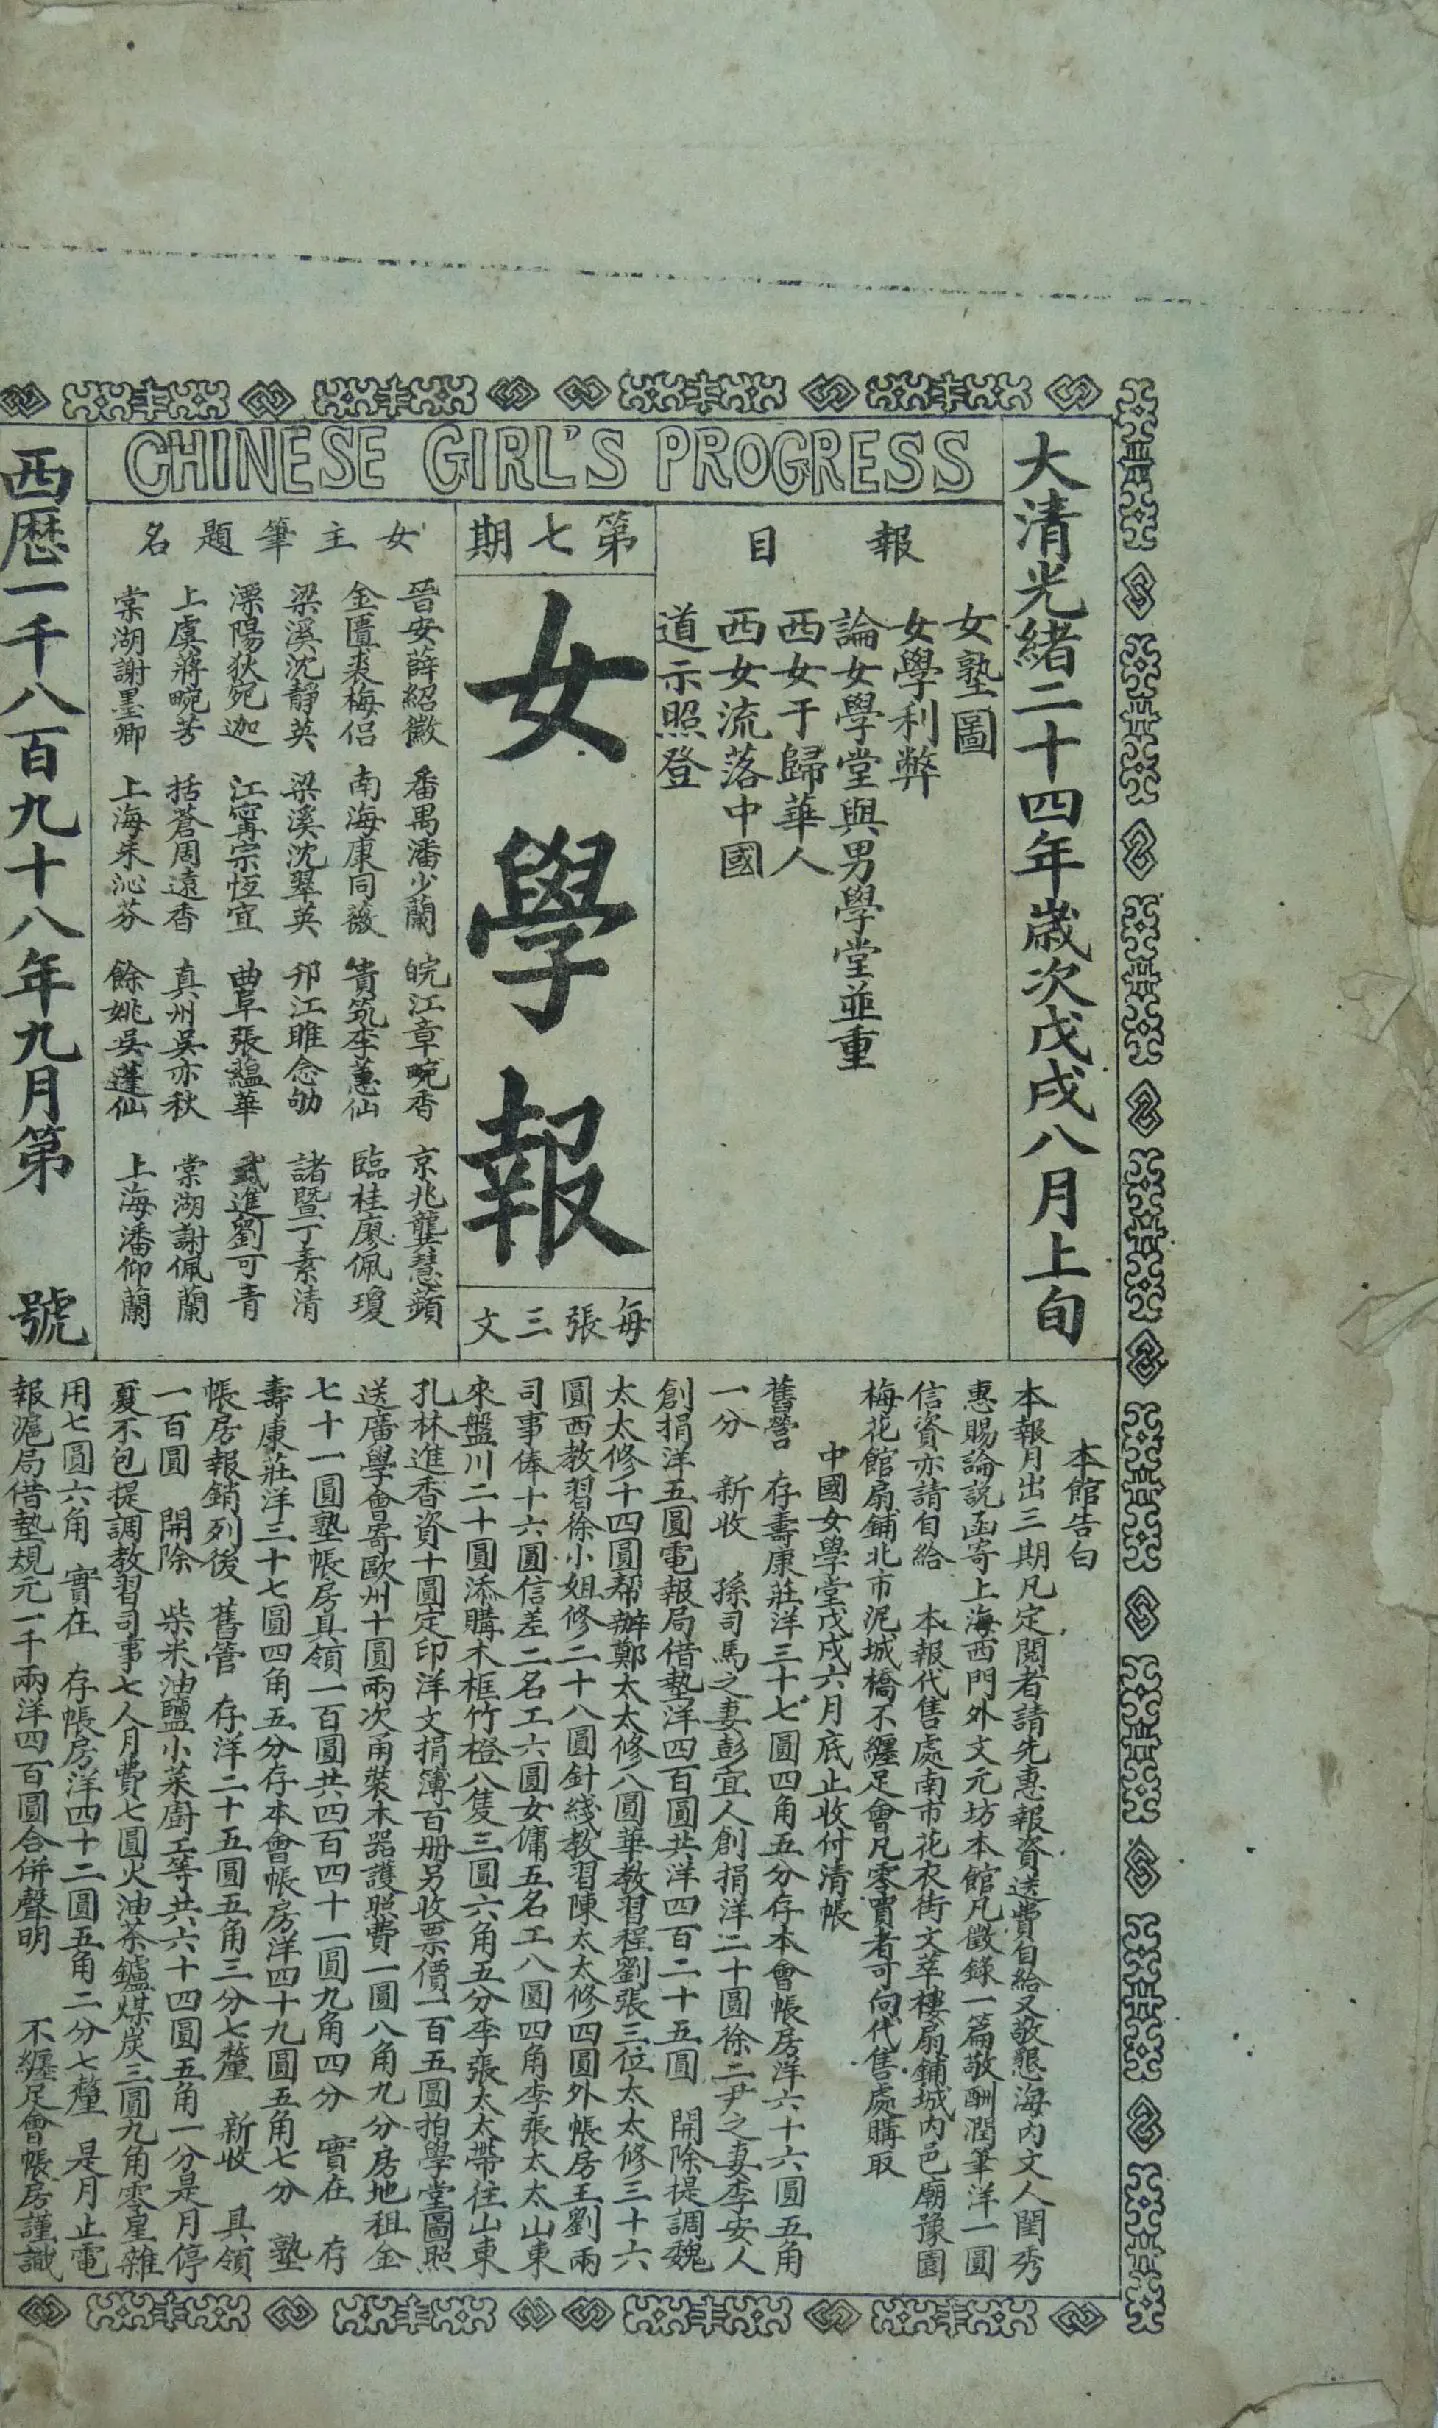 CHINESE GIRL'S PROGRESS
大清光緒二十四年歲次戊戌八月上旬
報目
女塾圖
女學利弊
論女學堂與男學堂並重
西女于歸華人
西女流落中國
道示照登
第七期
女學報
每張三文
女主筆題名
晉安薛紹徽 番禺潘少蘭 皖江章畹香 京兆龔慧蘋
金匱裘梅侶 南海康同薇 貴筑李蕙仙 臨桂廖佩瓊
梁溪沈靜英 梁溪沈翠英 邗江睢念劬 諸暨丁素清
溧陽狄宛迦 江甯宗恆宜 曲阜張蘊華 武進劉可青
上虞蔣畹芳 括蒼周遠香 真州吳亦秋 棠湖謝佩蘭
棠湖謝墨卿 上海朱沁芬 餘姚吳蓮仙 上海潘仰蘭
西曆一千八百九十八年九月第 號
本館告白
本報月出三期凡定閱者請先惠報資送費自給又敬懇海內文人閨秀
惠賜論說函寄上海西門外文元坊本館凡徵錄一篇敬酬潤筆洋一圓
信資亦請自給 本報代售處南市花衣街文萃樓扇鋪城內邑廟豫園
梅花館扇鋪北市泥城橋不纏足會凡零買者可向代售處購取
中國女學堂戊戌六月底止收付清帳
舊管 存壽康莊洋三十七圓四角五分存本會帳房洋六十六圓五角
一分 新收 孫司馬之妻彭宜人創捐洋二十圓徐二尹之妻李安人
創捐洋五圓電報局借墊洋四百圓共洋四百二十五圓 開除提調魏
太太修十四圓帮辦鄭太太修八圓華教習程劉張三位太太修三十六
圓西教習徐小姐修二十八圓針綫教習陳太太修四圓外帳房王劉兩
司事俸十六圓信差二名工六圓女傭五名工八圓四角李張太太山東
來盤川二十圓添購木框竹櫈八隻三圓六角五分李張太太帶往山東
孔林進香資十圓定印洋文捐簿百册另收票價一百五圓拍學堂圖照
送廣學會寄歐州十圓兩次甬裝木器護照費一圓八角九分房地租金
七十一圓塾帳房具領一百圓共四百四十一圓九角四分 實在 存
壽康莊洋三十七圓四角五分存本會帳房洋四十九圓五角七分 塾
帳房報銷列後 舊管 存洋二十五圓五角三分七釐 新收 具領
一百圓 開除 柴米油鹽小菜廚工等共六十四圓五角一分是月停
夏不包提調教習司事七人月費七圓火油茶鑪煤炭三圓九角零星雜
用七圓六角 實在 存帳房洋四十二圓五角二分七釐 是月止電
報滬局借墊規元一千兩洋四百圓合併聲明 不纏足會帳房謹識